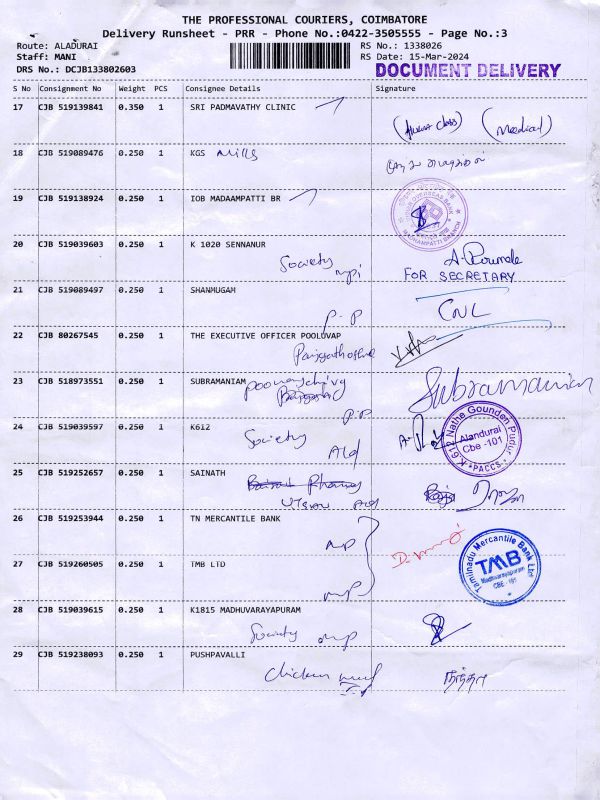 THE PROFESSIONAL COURIERS, COIMBATORE
Delivery Runsheet - PRR - Phone No.:0422-3505555 - Page No.:3
Route: ALADURAI RS No.: 1338026
Staff: MANI RS Date: 15-Mar-2024
DRS No.: DCJB133802603 DOCUMENT DELIVERY
S No Consignment No Weight PCS Consignee Details Signature
17 CJB 519139841 0.350 1 SRI PADMAVATHY CLINIC
(Medical)
18 CJB 519089476 0.250 1 KGS Mills
19 CJB 519138924 0.250 1 IOB MADAAMPATTI BR
20 CJB 519039603 0.250 1 K 1020 SENNANUR
Society
FOR SECRETARY
21 CJB 519089497 0.250 1 SHANMUGAM
P-P CNL
22 CJB 80267545 0.250 1 THE EXECUTIVE OFFICER POOLUVAP
23 CJB 518973551 0.250 1 SUBRAMANIAM
Subramanian
P.P
24 CJB 519039597 0.250 1 K612
Society
K.612 Nathe Gounden Pudur
Alandurai
Cbe -101
PACCS
25 CJB 519252657 0.250 1 SAINATH
26 CJB 519253944 0.250 1 TN MERCANTILE BANK
MP
Tamilnadu Mercantile Bank Ltd
TMB
Madhvarayapuram
CBE - 101
27 CJB 519260505 0.250 1 TMB LTD
MP
28 CJB 519039615 0.250 1 K1815 MADHUVARAYAPURAM
Society MP
29 CJB 519238093 0.250 1 PUSHPAVALLI
Chicken